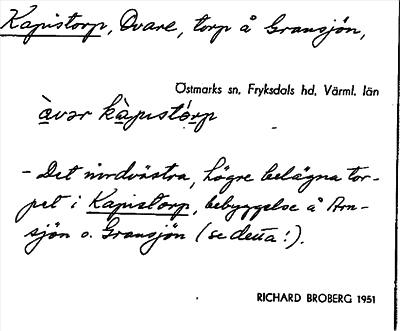 Kapistorp, Ovare, torp å Gransjön,
Östmarks sn, Fryksdals hd, Värml. län
àvər kàpistórp
- Det nordvästra, högre belägna tor-
pet i Kapistorp, bebyggelse å Arn-
sjön o. Gransjön (se detta!).
RICHARD BROBERG 1951